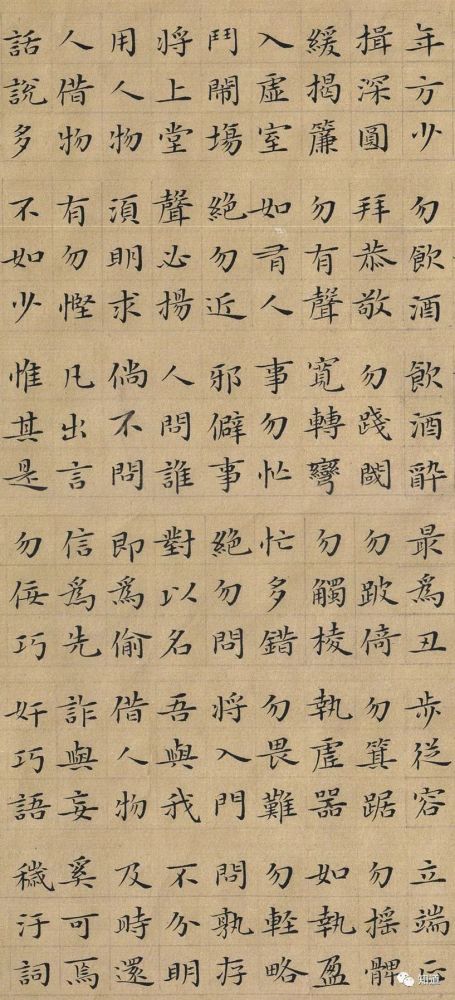 年方少勿飲酒飲酒醉最為丑步從容立端正
揖深圓拜恭敬勿踐閾勿跛倚勿箕踞勿搖髀
緩揭簾勿有聲寬轉彎勿觸棱執虛器如執盈
入虛室如有人事勿忙忙多錯勿畏難勿輕略
鬥鬧塲絕勿近邪僻事絕勿問將入門問孰存
將上堂聲必揚人問誰對以名吾與我不分明
用人物須明求倘不問即為偷借人物及時還
人借物有勿慳凡出言信為先詐與妄奚可焉
話說多不如少惟其是勿佞巧奸巧語穢汙詞